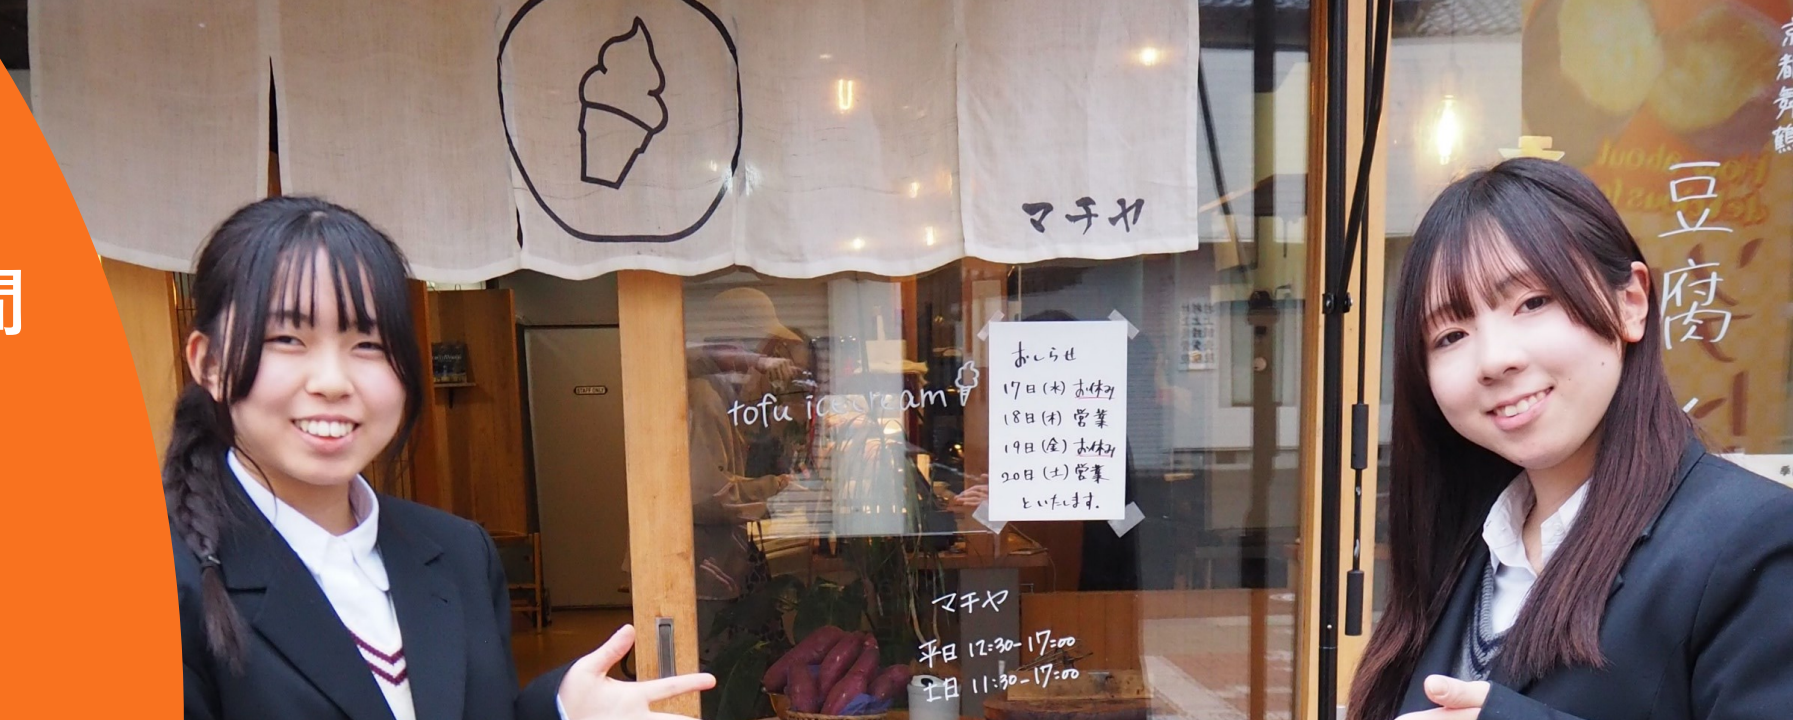 間
マチヤ
tofu icecream
おしらせ
17日(水) お休み
18日(木) 営業
19日(金) お休み
20日(土) 営業
といたします.
マチヤ
平日 12:30-17:00
土日 11:30-17:00
STAFF ONLY
京都舞鶴
豆腐